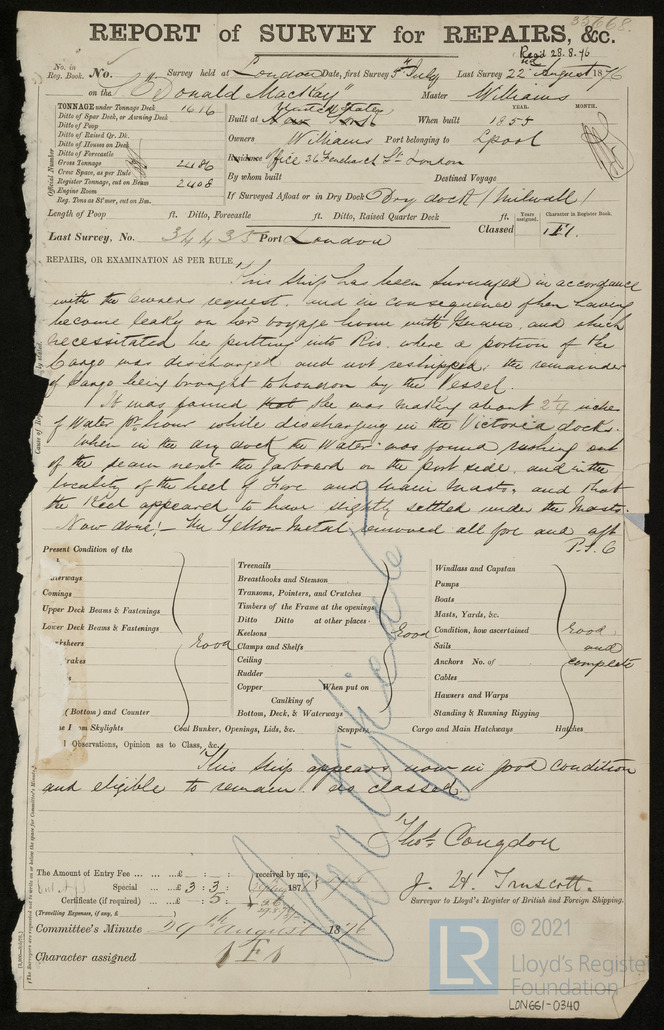 35668.
REPORT of SURVEY for REPAIRS, &c.
Rec'd 28.8.76
No. in Reg. Book. No. Survey held at London Date, first Survey 5th July Last Survey 22nd August 1876
on the "Donald MacKay" Master Williams
TONNAGE under Tonnage Deck 1616
Ditto of Spar Deck, or Awning Deck
Ditto of Poop
Ditto of Raised Qr. Dk.
Ditto of Houses on Deck
Ditto of Forecastle
Gross Tonnage 2486
Crew Space, as per Rule
Register Tonnage, cut on Beam 2408
Engine Room
Reg. Ton. as St'mer, cut on Bm.
Official Number
United States
YEAR. MONTH.
Built at When built 1855
Owners Williams Port belonging to Lpool
Residence Office 36 Fenchurch St London
By whom built Destined Voyage
If Surveyed Afloat or in Dry Dock Dry dock (Milwall)
Length of Poop ft. Ditto, Forecastle ft. Ditto, Raised Quarter Deck ft.
Years assigned. Character in Register Book.
Last Survey, No. 34435 Port London Classed Æ1.
REPAIRS, OR EXAMINATION AS PER RULE,
This Ship has been Surveyed in accordance
with the Owners request, and in consequence of her having
become leaky on her voyage home with Guano, and which
necessitated her putting into Rio, where a portion of the
Cargo was discharged and not reshipped, the remainder
of Cargo being brought to London by the Vessel.
It was found that She was making about 24 inches
of Water pr hour while discharging in the Victoria docks.
When in the dry dock the Water was found rushing out
of the seam next the garboard on the port side, and in the
locality of the heel of Fore and Main Masts, and that
the Keel appeared to have slightly settled under the Masts.
Now done:— The Yellow Metal removed all fore and aft
P.T.O
Present Condition of the
Comings
Upper Deck Beams & Fastenings
Lower Deck Beams & Fastenings
Good
(Bottom) and Counter
Treenails
Breasthooks and Stemson
Transoms, Pointers, and Crutches
Timbers of the Frame at the openings
Ditto Ditto at other places
Keelsons
Clamps and Shelfs
Ceiling
Rudder
Copper When put on
Caulking of
Bottom, Deck, & Waterways
Good
Windlass and Capstan
Pumps
Boats
Masts, Yards, &c.
Condition, how ascertained
Sails
Anchors No. of
Cables
Hawsers and Warps
Standing & Running Rigging
Good and complete
Skylights Coal Bunker, Openings, Lids, &c. Scuppers Cargo and Main Hatchways Hatches
Observations, Opinion as to Class, &c.
This Ship appears now in good condition
and eligible to remain as classed.
Thos Congdon
J. H. Truscott.
Surveyor to Lloyd's Register of British and Foreign Shipping.
The Amount of Entry Fee £ : : received by me,
Special £ 3 : 3 :
Certificate (if required) £ : 5 :
(Travelling Expenses, if any, £ )
Committee's Minute 29th August 1876
Character assigned Æ1
Certificate
LR © 2021
Lloyd's Register
Foundation
LON661-0340